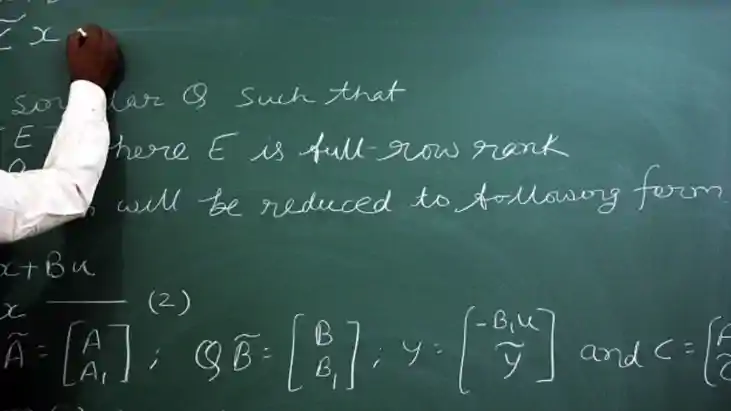 x
Q such that
E here E is full-row rank
will be reduced to following form
x + Bu
x (2)
Ã = [A A₁] ; Q B̃ = [B B₁] ; y = [-B₁u ỹ] and C = [